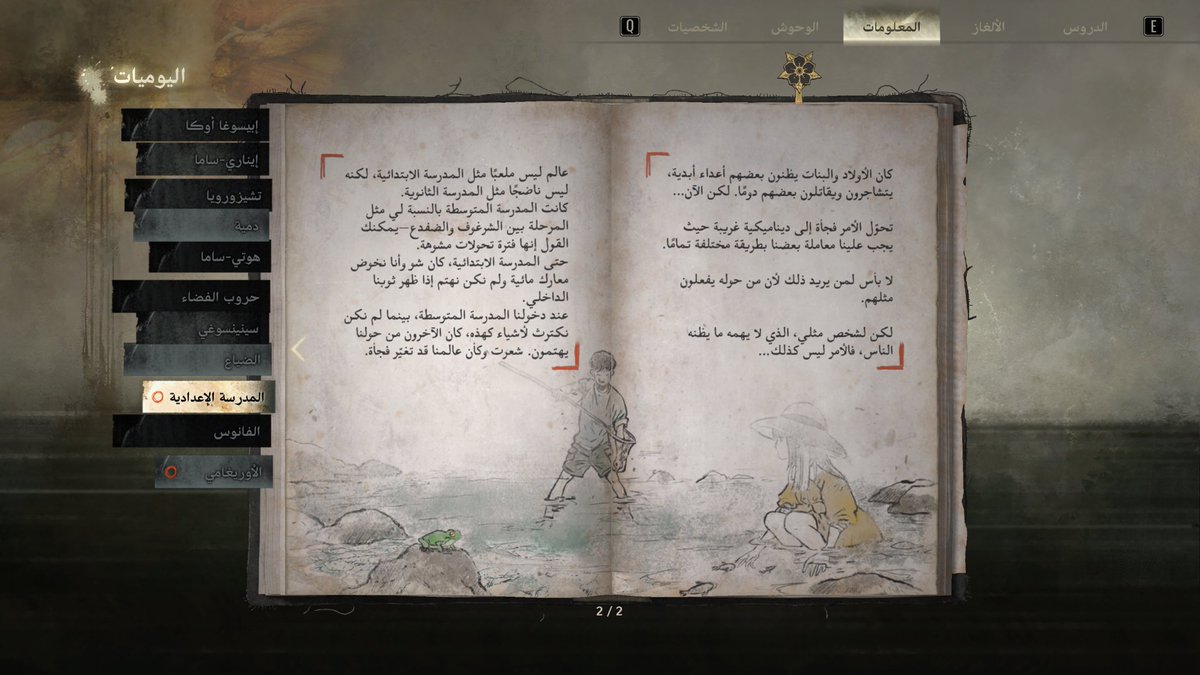 E
الدروس
الألغاز
المعلومات
الوحوش
الشخصيات
Q
اليوميات
إبيسوغا أوكا
إيناري-ساما
تشيزورويا
دمية
هوتي-ساما
حروب الفضاء
سينينسوغي
الضياع
المدرسة الإعدادية
الفانوس
الأوريغامي
كان الأولاد والبنات يظنون بعضهم أعداء أبدية،
يتشاجرون ويقاتلون بعضهم دومًا. لكن الآن...
تحوّل الأمر فجأة إلى ديناميكية غريبة حيث
يجب علينا معاملة بعضنا بطريقة مختلفة تمامًا.
لا بأس لمن يريد ذلك لأن من حوله يفعلون
مثلهم.
لكن لشخص مثلي، الذي لا يهمه ما يظنه
الناس، فالأمر ليس كذلك...
عالم ليس ملعبًا مثل المدرسة الابتدائية، لكنه
ليس ناضجًا مثل المدرسة الثانوية.
كانت المدرسة المتوسطة بالنسبة لي مثل
المرحلة بين الشرغوف والضفدع—يمكنك
القول إنها فترة تحولات مشوهة.
حتى المدرسة الابتدائية، كان شو وأنا نخوض
معارك مائية ولم نكن نهتم إذا ظهر ثوبنا
الداخلي.
عند دخولنا المدرسة المتوسطة، بينما لم نكن
نكترث لأشياء كهذه، كان الآخرون من حولنا
يهتمون. شعرت وكأن عالمنا قد تغيّر فجأة.
2 / 2